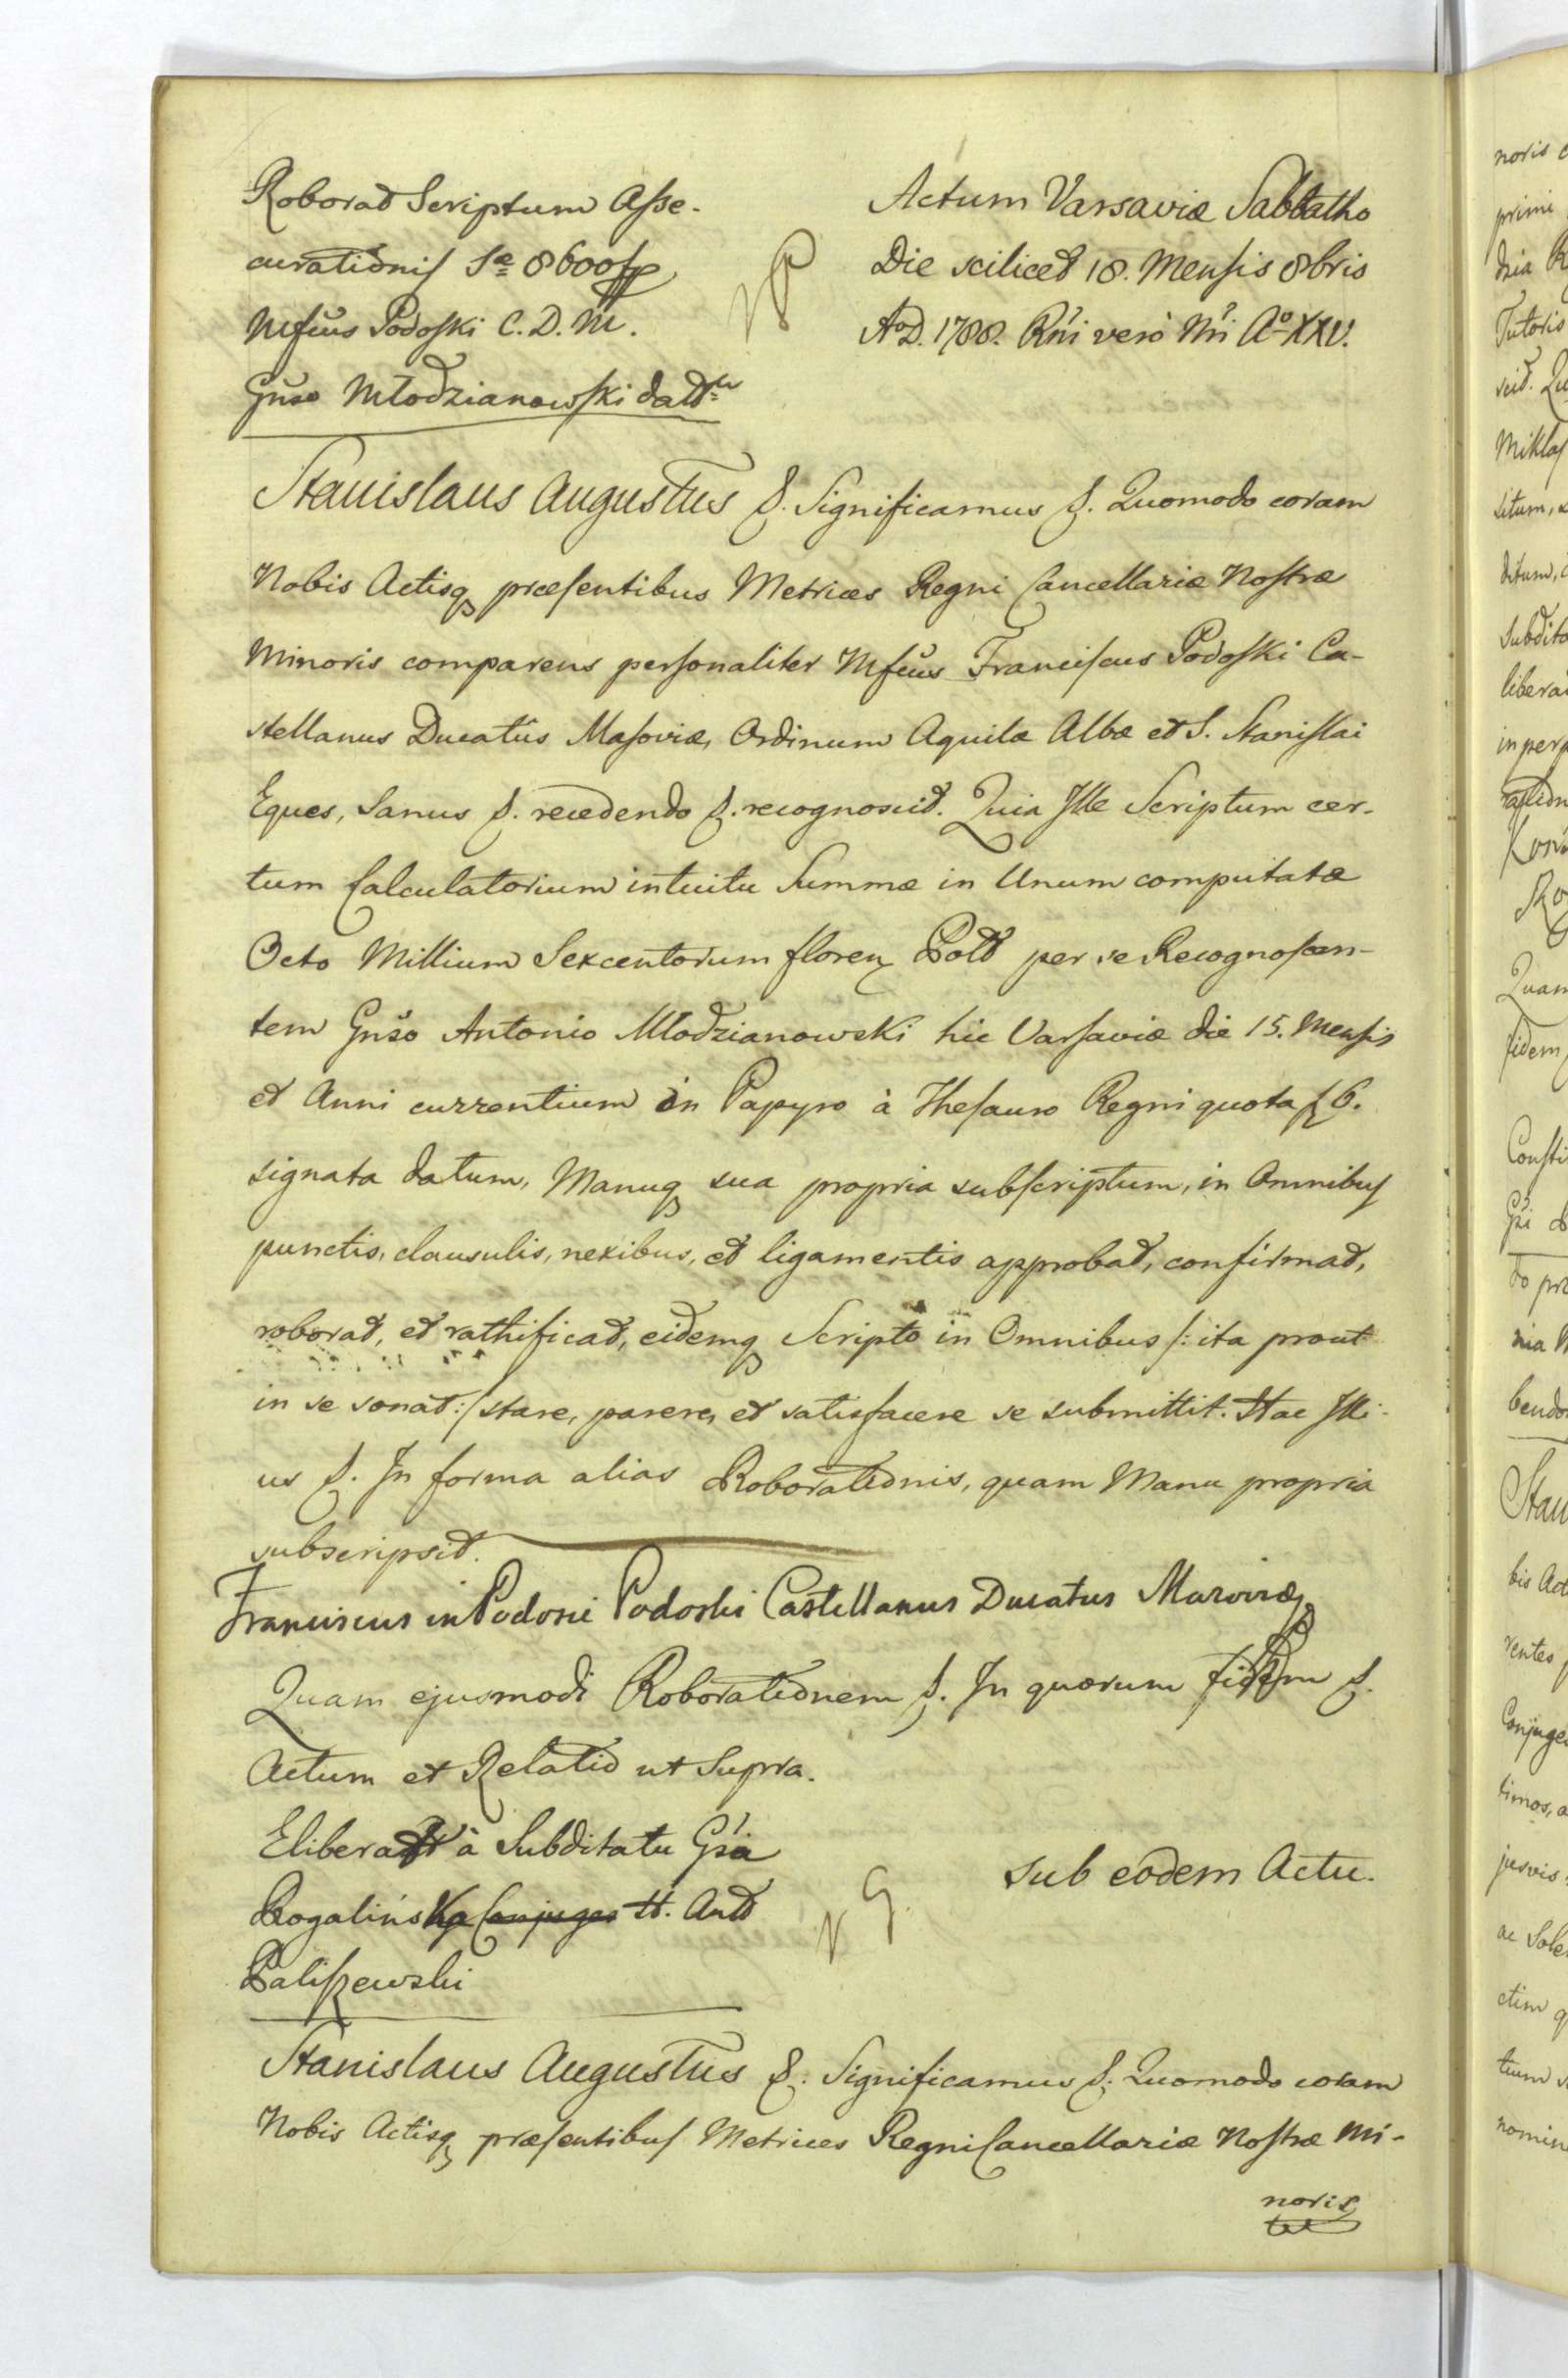 Roborat Scriptum Asse-
curationis Sæ 8600 fp
Mfcus Podoski C. D. M.
Gnso Młodzianowski datt
Actum Varsaviæ Sabbatho
Die scilicet 18. Mensis 8bris
AoD. 1788. Rńi verò Nri Ao XXV.
Stanislaus Augustus &. Significamus &. Quomodo coram
Nobis Actisq præsentibus Metrices Regni Cancellariæ Nostræ
Minoris comparens personaliter Mfcus Franciscus Podoski Ca-
stellanus Ducatûs Masoviæ, Ordinum Aquilæ Albæ et S. Stanislai
Eques, Sanus &. recedendo &. recognoscit. Quia Ille Scriptum cer-
tum Calculatorium intuitu Summæ in Unum computatæ
Octo Millium Sexcentorum floren Poll per se Recognoscen-
tem Gnso Antonio Młodzianowski hic Varsaviæ die 15. Mensis
et Anni currentium in Papyro à Thesauro Regni quota f 6.
signata datum, Manuq sua propria subscriptum, in Omnibus
punctis, clausulis, nexibus, et ligamentis approbat, confirmat,
roborat, et rathificat, eidemq Scripto in Omnibus /: ita prout
in se sonat :/ stare, parere, et satisfacere se submittit. Hac Illi-
us &. In forma alias Roborationis, quam Manu propria
subscripsit.
Franciscus in Podosie Podoski Castellanus Ducatus Masoviæ
Quam ejusmodi Roborationem &. In quorum fidem &.
Actum et Relatio ut Supra.
Eliberatt à Subditatu Gsa
Rogalińska Conjuges tt. Antt
Paliszewski
Sub eodem Actu.
Stanislaus Augustus &. Significamus &. Quomodo coram
Nobis Actisq præsentibus Metrices Regni Cancellariæ Nostræ Mi-
noris